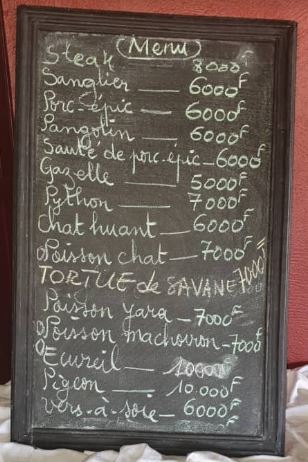 (Menu)
Steak 8000F
Sanglier — 6000F
Porc-épic — 6000F
Pangolin — 6000F
Sauté de porc-épic – 6000F
Gazelle — 5000F
Python — 7000F
Chat huant — 6000F
Poisson chat — 7000F
TORTUE de SAVANE 7000F
Poisson yara – 7000F
Poisson machoiron – 7000F
Ecureil — 10000F
Pigeon — 10.000F
Vers-à-soie – 6000F